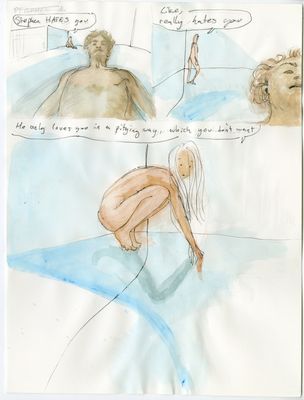 Stephen HATES you
Like,
really hates you
He only loves you in a pitying way, which you don't want